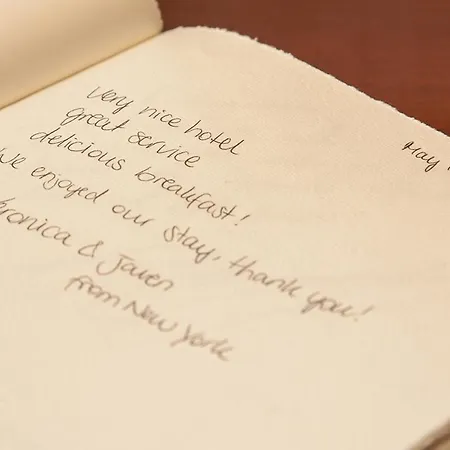 May
very nice hotel
great service
delicious breakfast!
We enjoyed our stay, thank you!
ronica & Javen
from New York